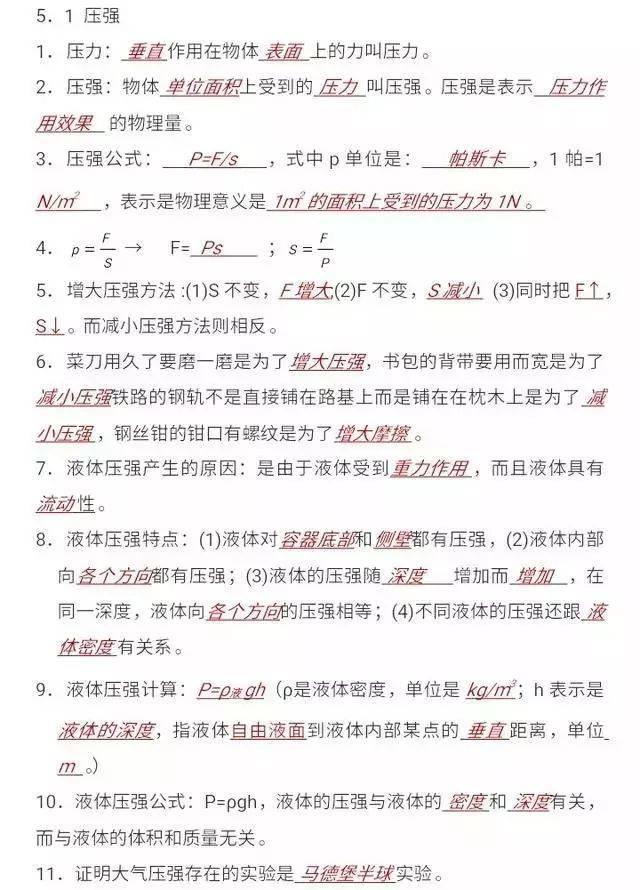 5．1 压强
1．压力：垂直作用在物体表面上的力叫压力。
2．压强：物体单位面积上受到的压力叫压强。压强是表示 压力作
用效果 的物理量。
3．压强公式： P=F/s ，式中 p 单位是： 帕斯卡 ，1 帕=1
N/m² ，表示是物理意义是 1m² 的面积上受到的压力为 1N 。
4．ρ=F/S → F= Ps ；s=F/P
5．增大压强方法 :(1)S 不变，F 增大;(2)F 不变，S 减小 (3)同时把 F↑，
S↓。而减小压强方法则相反。
6．菜刀用久了要磨一磨是为了增大压强，书包的背带要用而宽是为了
减小压强铁路的钢轨不是直接铺在路基上而是铺在在枕木上是为了 减
小压强，钢丝钳的钳口有螺纹是为了增大摩擦。
7．液体压强产生的原因：是由于液体受到重力作用，而且液体具有
流动性。
8．液体压强特点：(1)液体对容器底部和侧壁都有压强，(2)液体内部
向各个方向都有压强；(3)液体的压强随 深度 增加而 增加 ，在
同一深度，液体向各个方向的压强相等；(4)不同液体的压强还跟 液
体密度有关系。
9．液体压强计算：P=ρ液gh（ρ是液体密度，单位是 kg/m³；h 表示是
液体的深度，指液体自由液面到液体内部某点的 垂直 距离，单位
m 。）
10．液体压强公式：P=ρgh，液体的压强与液体的 密度和 深度有关，
而与液体的体积和质量无关。
11．证明大气压强存在的实验是 马德堡半球实验。